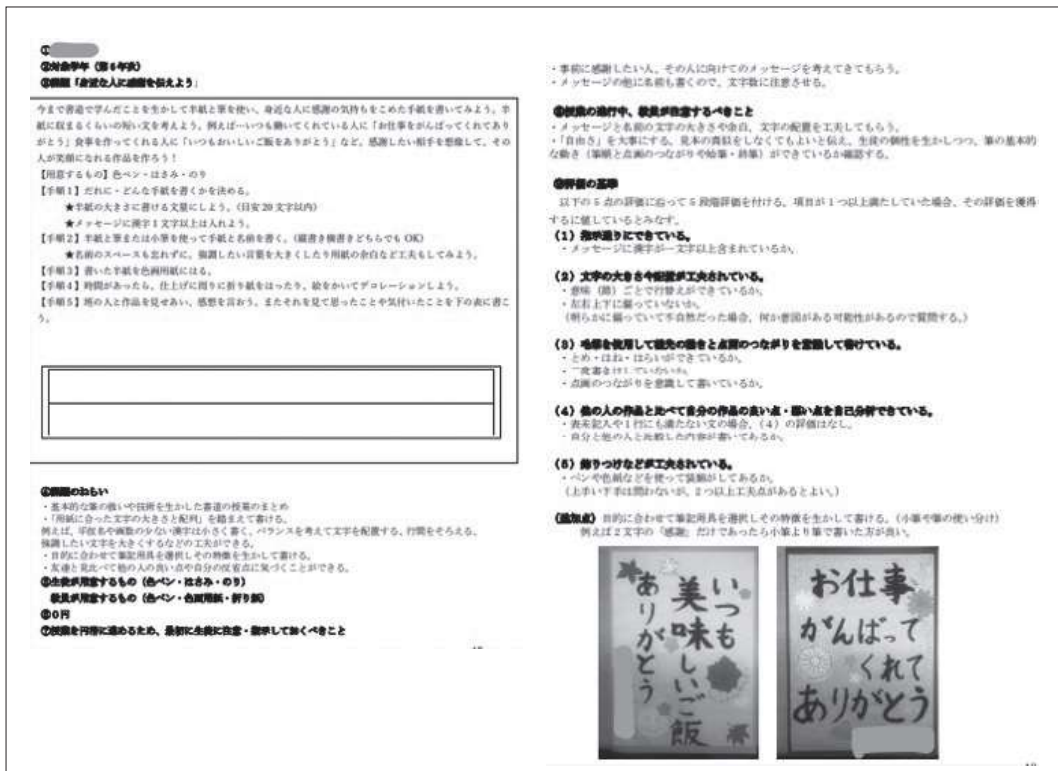 ①
②対象学年(第6年次)
③課題「身近な人に感謝を伝えよう」
今まで書道で学んだことを生かして半紙と筆を使い、身近な人に感謝の気持ちをこめた手紙を書いてみよう。半
紙に収まるくらいの短い文を考えよう。例えば…いつも働いてくれている人に「お仕事をがんばってくれてあり
がとう」食事を作ってくれる人に「いつもおいしいご飯をありがとう」など、感謝したい相手を想像して、その
人が笑顔になれる作品を作ろう!
【用意するもの】色ペン・はさみ・のり
【手順1】だれに・どんな手紙を書くかを決める。
★半紙の大きさに書ける文量にしよう。(目安20文字以内)
★メッセージに漢字1文字以上は入れよう。
【手順2】半紙と筆または小筆を使って手紙と名前を書く。(縦書き横書きどちらでもOK)
★名前のスペースも忘れずに。強調したい言葉を大きくしたり用紙の余白など工夫もしてみよう。
【手順3】書いた半紙を色画用紙にはる。
【手順4】時間があったら、仕上げに周りに折り紙をはったり、絵をかいてデコレーションしよう。
【手順5】班の人と作品を見せあい、感想を言おう。またそれを見て思ったことや気付いたことを下の表に書こ
う。
④課題のねらい
・基本的な筆の扱いや技術を生かした書道の授業のまとめ
・「用紙に合った文字の大きさと配列」を踏まえて書ける。
例えば、平仮名や画数の少ない漢字は小さく書く、バランスを考えて文字を配置する、行間をそろえる、
強調したい文字を大きくするなどの工夫ができる。
・目的に合わせて筆記用具を選択しその特徴を生かして書ける。
・友達と見比べて他の人の良い点や自分の反省点に気づくことができる。
⑤生徒が用意するもの(色ペン・はさみ・のり)
教員が用意するもの(色ペン・色画用紙・折り紙)
⑥0円
⑦授業を円滑に進めるため、最初に生徒に注意・指示しておくべきこと
・事前に感謝したい人、その人に向けてのメッセージを考えてきてもらう。
・メッセージの他に名前も書くので、文字数に注意させる。
⑧授業の進行中、教員が注意するべきこと
・メッセージと名前の文字の大きさや余白、文字の配置を工夫してもらう。
・「自由さ」を大事にする。見本の真似をしなくてもよいと伝え、生徒の個性を生かしつつ、筆の基本的
な動き(筆順と点画のつながりや始筆・終筆)ができているか確認する。
⑨評価の基準
以下の5点の評価に沿って5段階評価を付ける。項目が1つ以上満たしていた場合、その評価を獲得
するに値しているとみなす。
(1)指示通りにできている。
・メッセージに漢字が一文字以上含まれているか。
(2)文字の大きさや配置が工夫されている。
・意味(節)ごとで行替えができているか。
・左右上下に偏っていないか。
(明らかに偏っていて不自然だった場合、何か意図がある可能性があるので質問する。)
(3)毛筆を使用して穂先の動きと点画のつながりを意識して書けている。
・とめ・はね・はらいができているか。
・二度書きはしていないか。
・点画のつながりを意識して書いているか。
(4)他の人の作品と比べて自分の作品の良い点・悪い点を自己分析できている。
・表未記入や1行にも満たない文の場合、(4)の評価はなし。
・自分と他の人と比較した内容が書いてあるか。
(5)飾りつけなどが工夫されている。
・ペンや色紙などを使って装飾がしてあるか。
(上手い下手は問わないが、2つ以上工夫点があるとよい。)
(追加点)目的に合わせて筆記用具を選択しその特徴を生かして書ける。(小筆や筆の使い分け)
例えば2文字の「感謝」だけであったら小筆より筆で書いた方が良い。
いつも
美味しいご飯
ありがとう
お仕事
がんばって
くれて
ありがとう